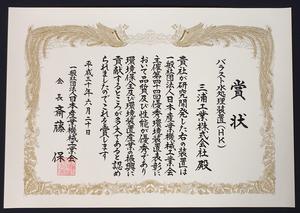 賞状
バラスト水処理装置（HK）
三浦工業株式会社 殿
貴社が研究開発した右の装置は
一般社団法人日本産業機械工業会
主催第四十四回優秀環境装置表彰に
おいて品質及び性能が優秀であり
環境保全及び環境装置産業の振興に
貢献するところが多大であると認め
られましたのでこれを賞します
平成三十年六月二十日
一般社団法人日本産業機械工業会
会長 斎藤 保